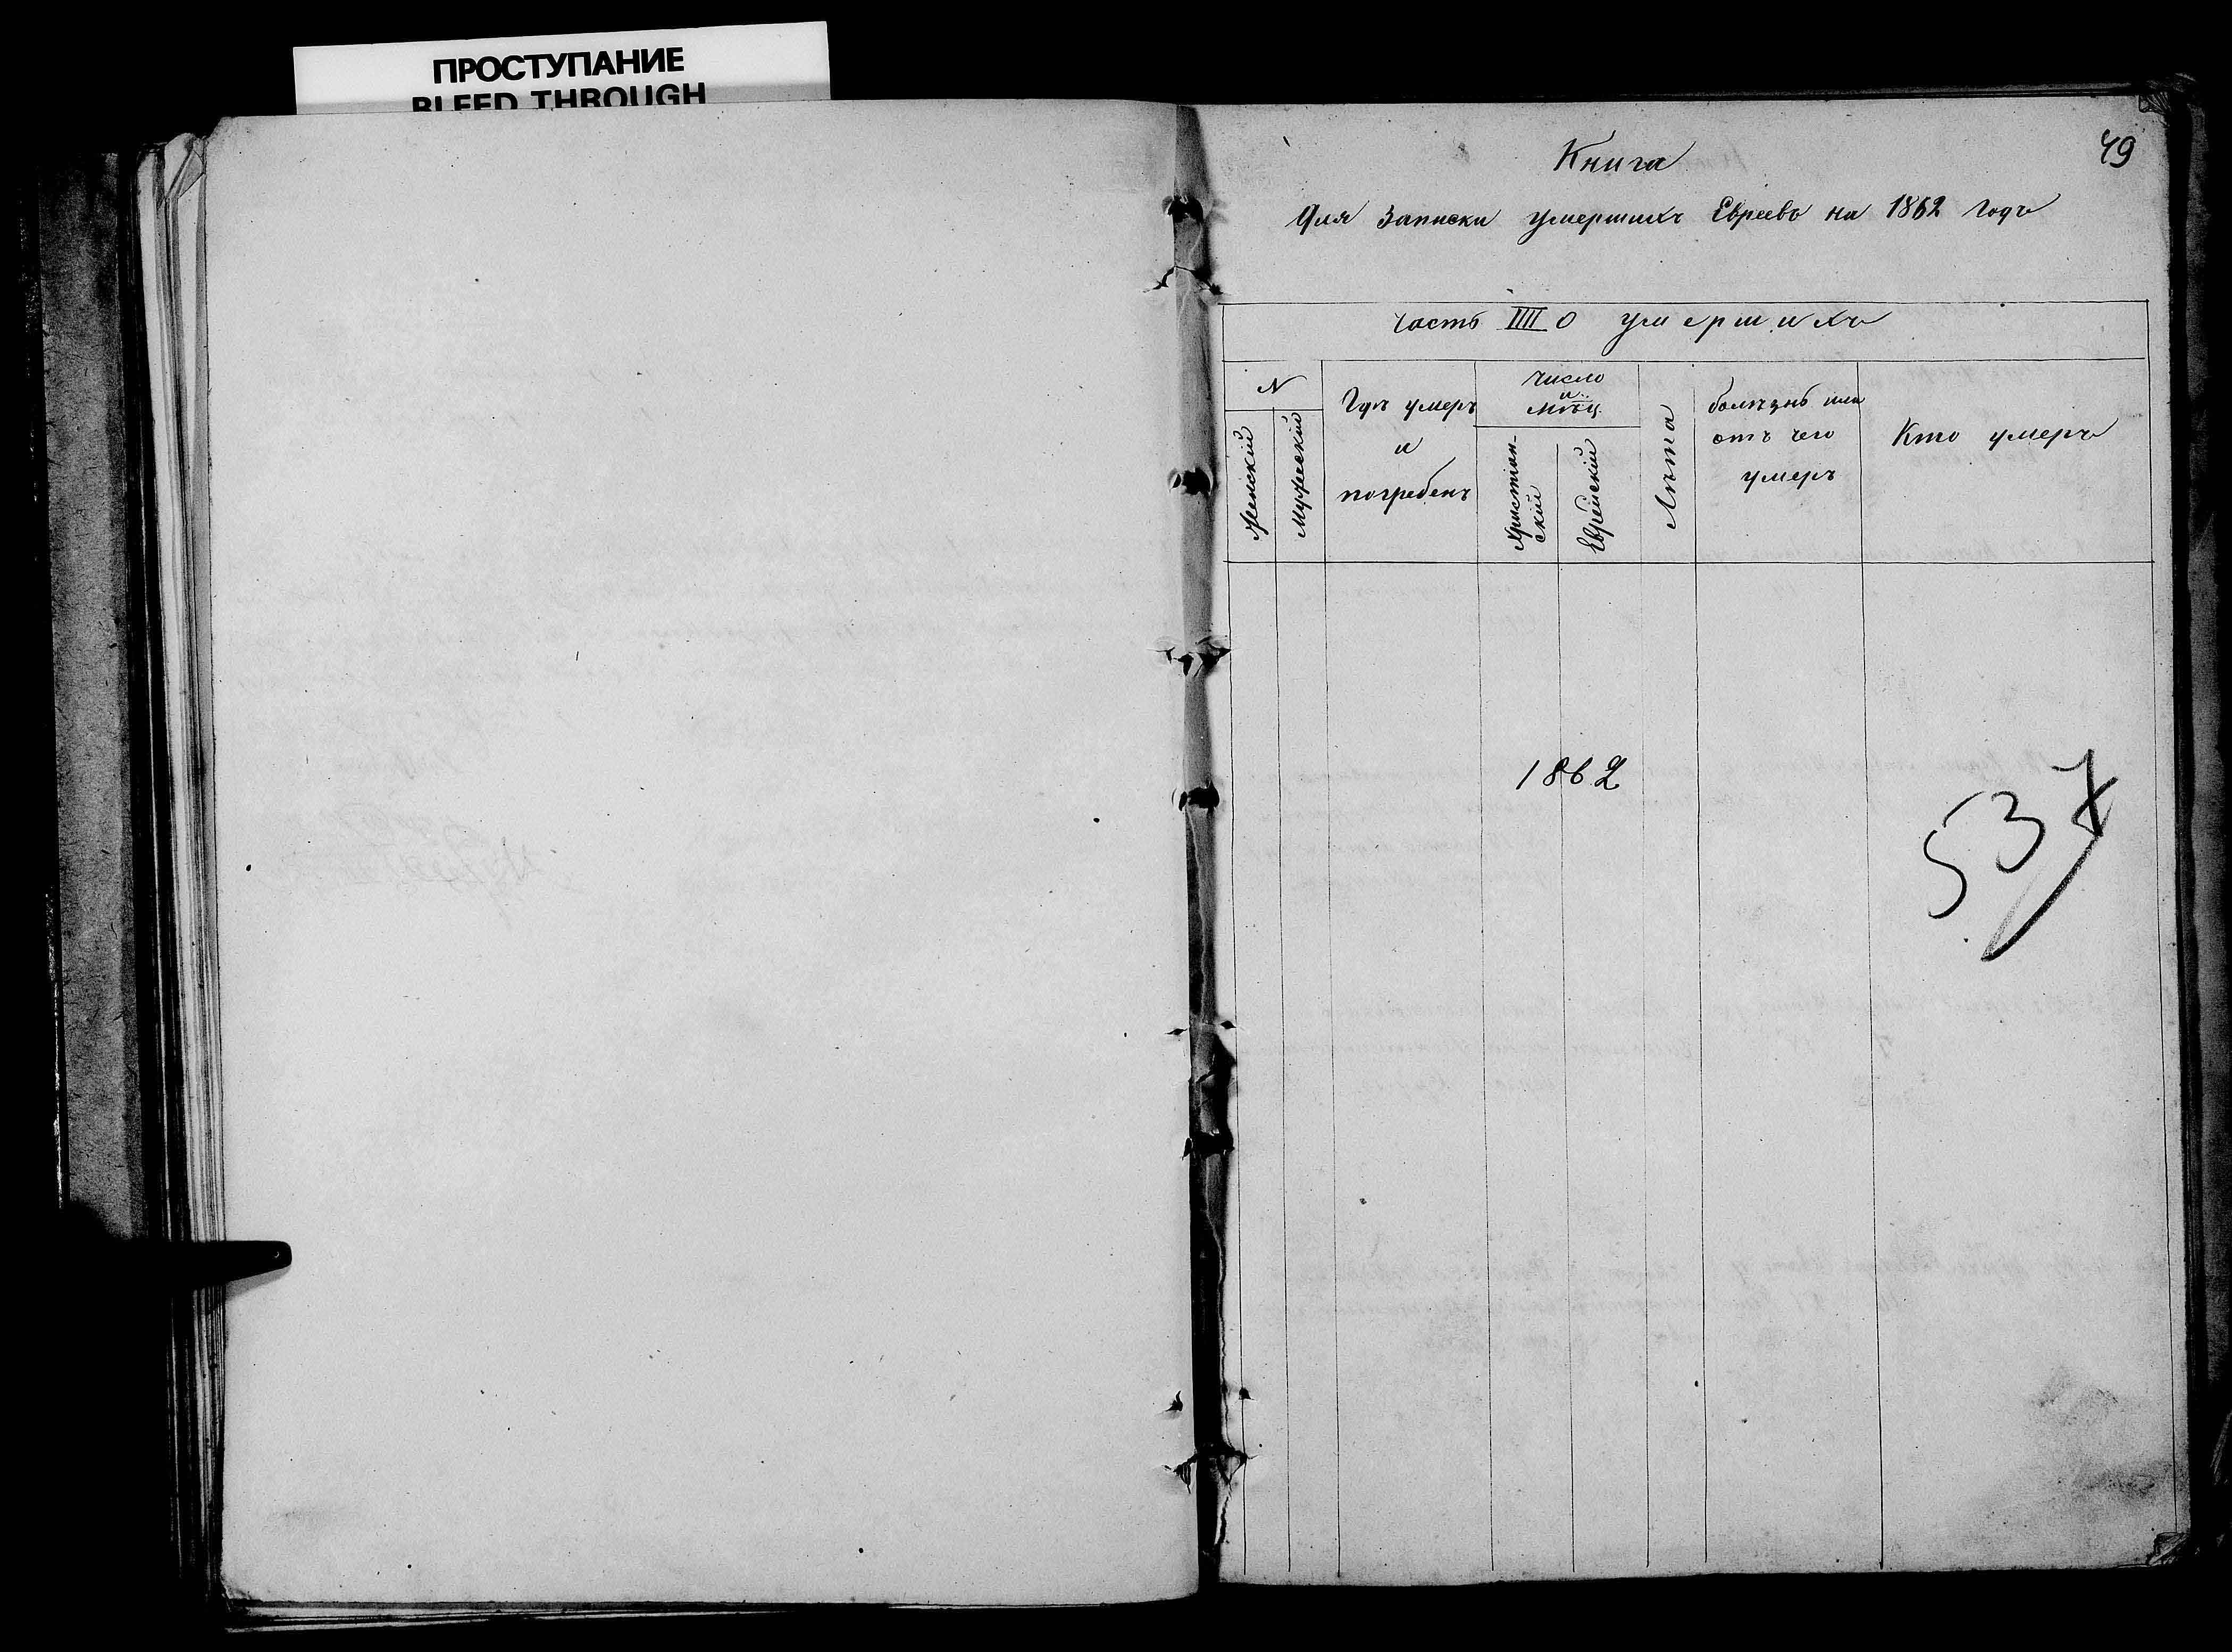 ПРОСТУПАНИЕ
BLEED THROUGH
49
Книга
Для Записки умершихъ Евреевъ на 1862 годъ
Часть IIII о умершихъ
N
Женскій
Мужескій
Гдѣ умеръ
и
погребенъ
Число
и
мѣц.
Христіан-
скій
Еврейскій
Лѣта
болѣзнь или
отъ чего
умеръ
Кто умеръ
1862
537